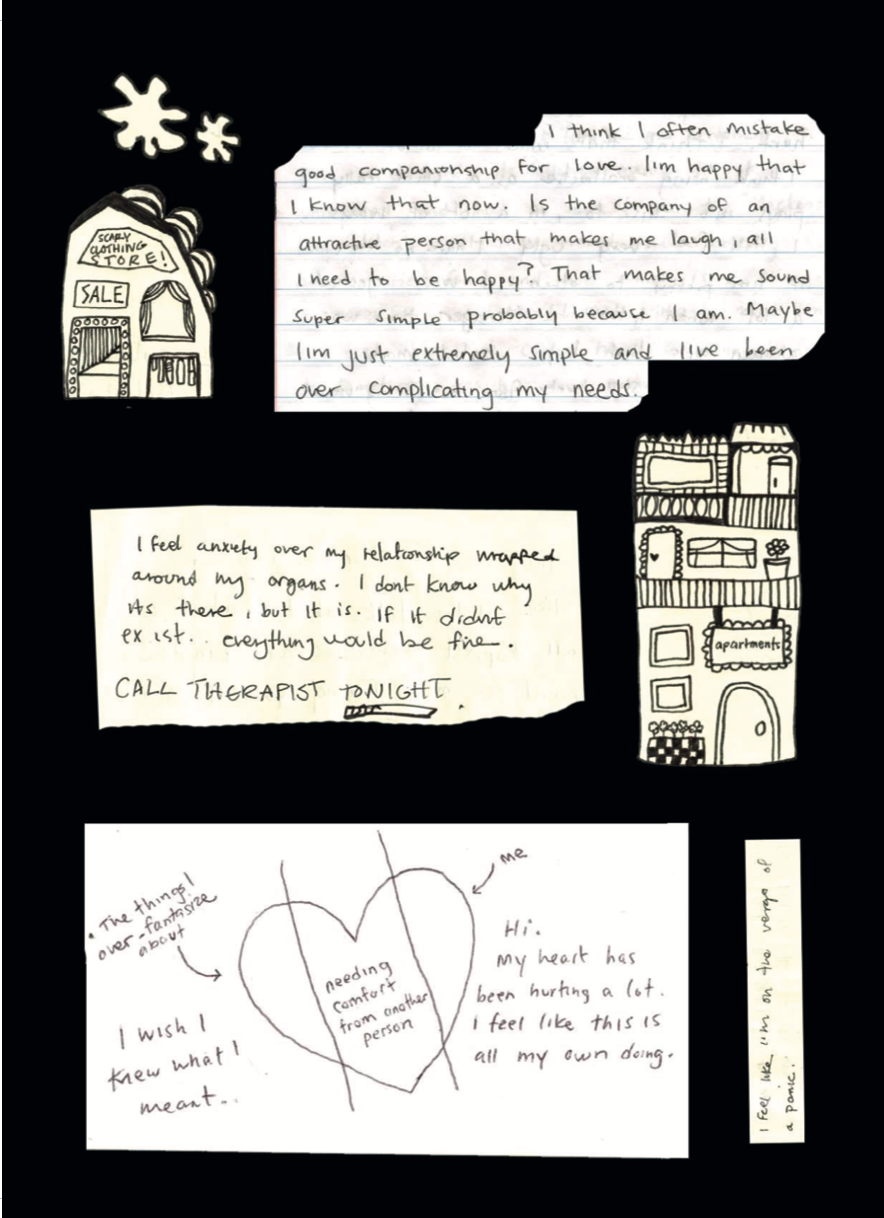 SCARY
CLOTHING
STORE!
SALE
I think I often mistake
good companionship for love. I'm happy that
I know that now. Is the company of an
attractive person that makes me laugh, all
I need to be happy? That makes me sound
super simple probably because I am. Maybe
I'm just extremely simple and I've been
over complicating my needs.
I feel anxiety over my relationship wrapped
around my organs. I dont know why
its there, but it is. If it didnt
exist.. everything would be fine.
CALL THERAPIST TONIGHT.
apartments
me
• The things I
over-fantasize
about
needing
comfort
from another
person
Hi.
My heart has
been hurting a lot.
I feel like this is
all my own doing.
I wish I
knew what I
meant..
I feel like I'm on the verge of
a panic.